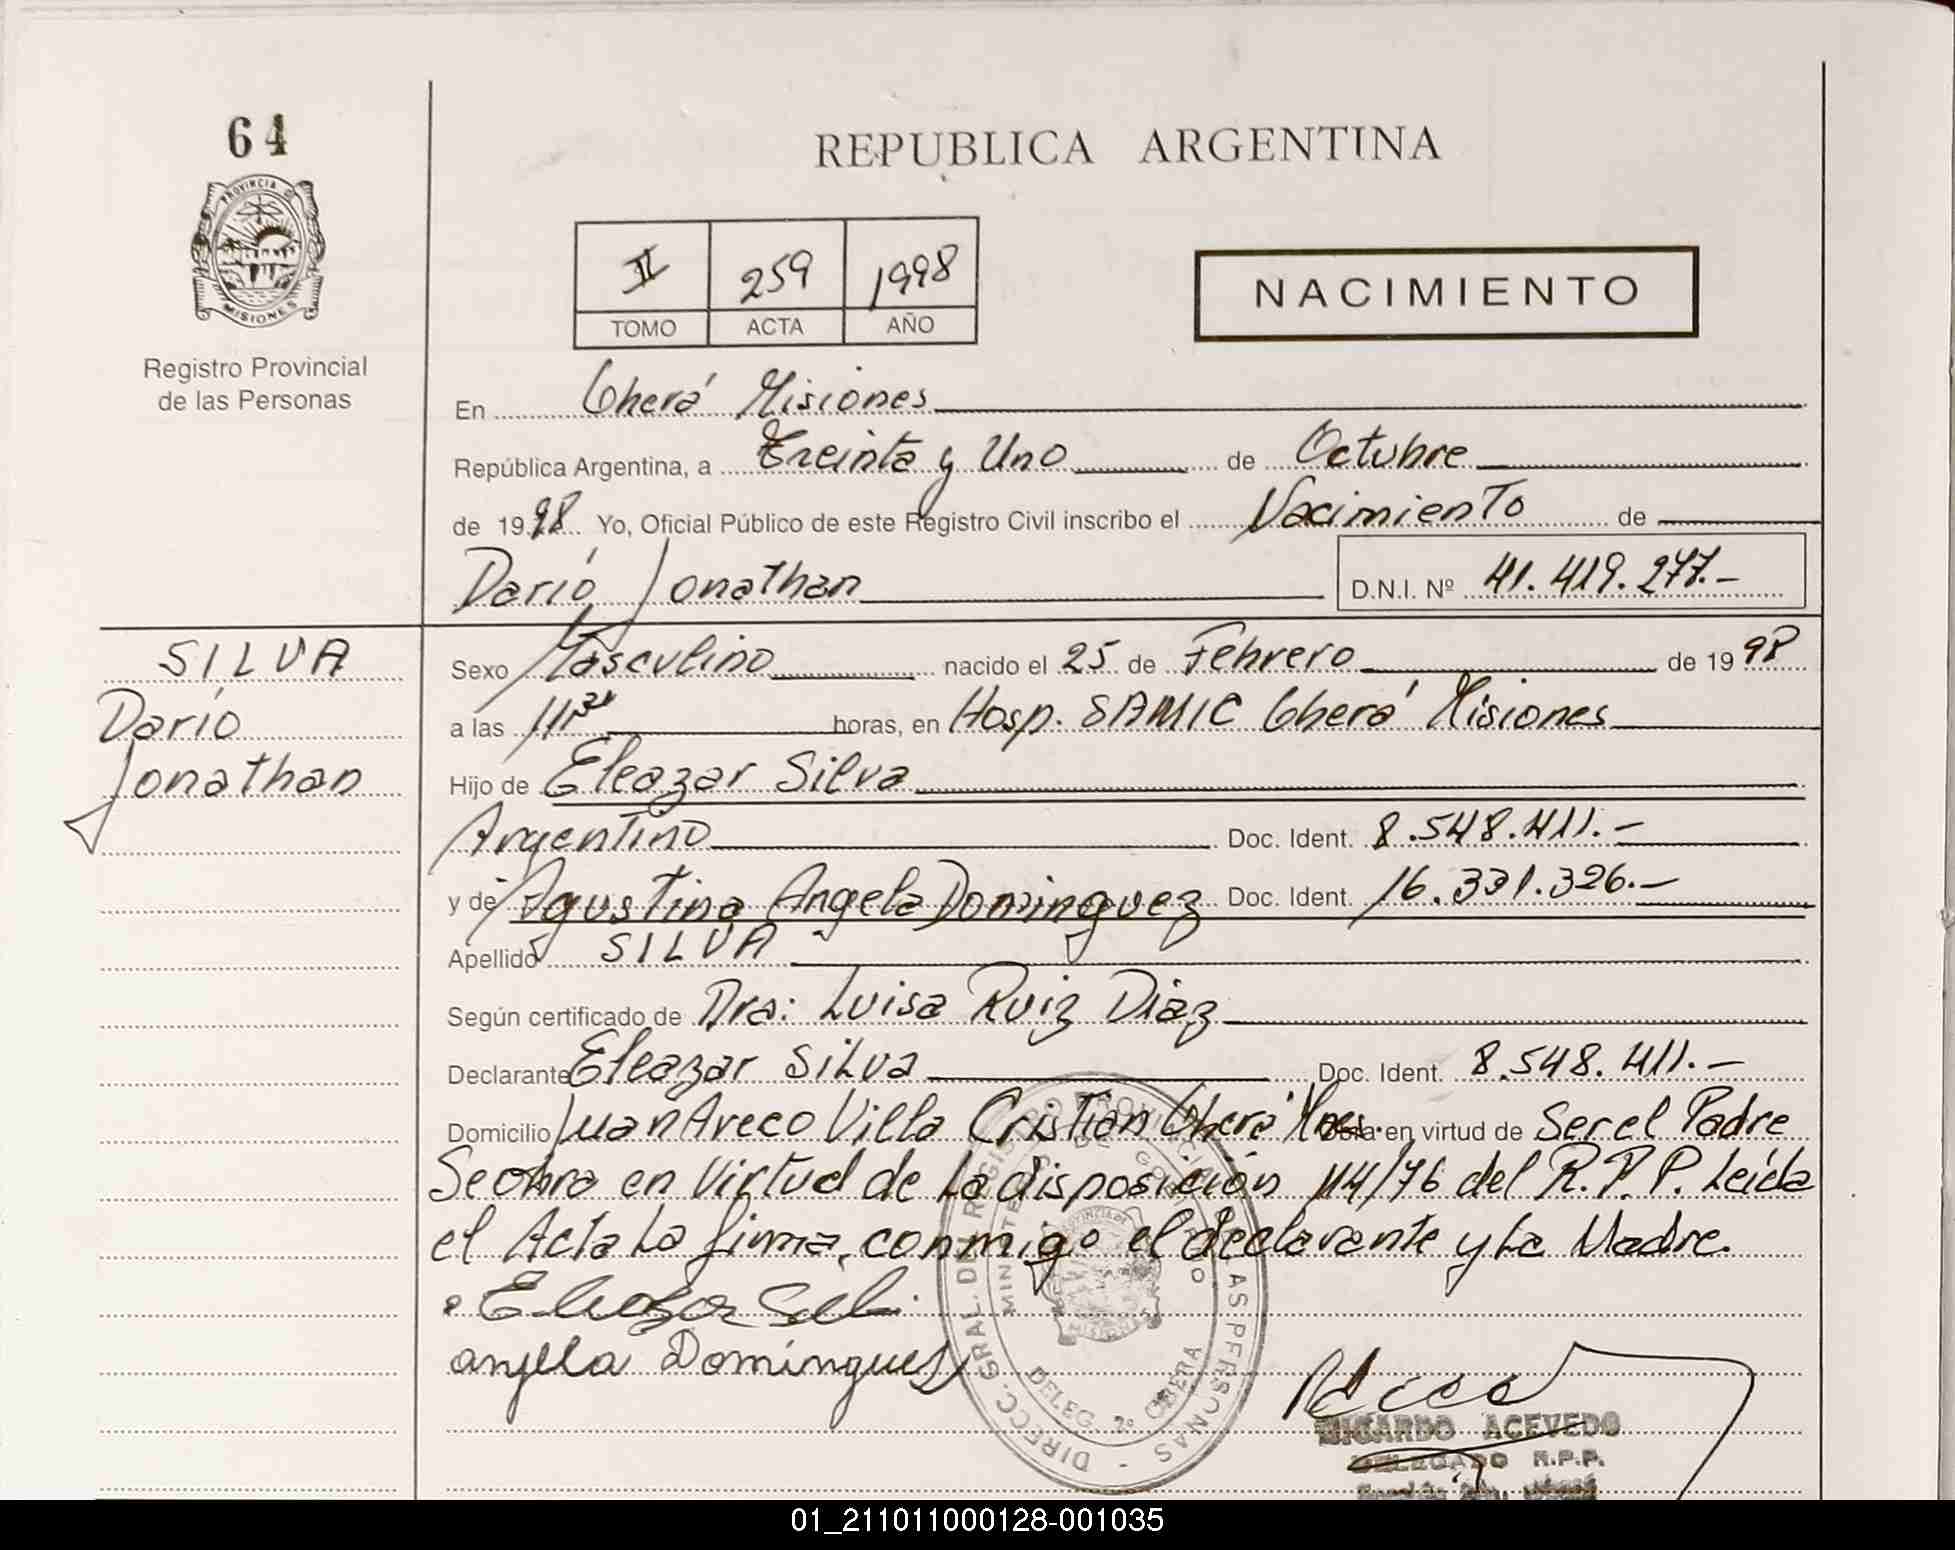 64
PROVINCIA DE
MISIONES
Registro Provincial
de las Personas
REPUBLICA ARGENTINA
II 259 1998
TOMO ACTA AÑO
NACIMIENTO
En Oberá Misiones
República Argentina, a Treinta y Uno de Octubre
de 1998 Yo, Oficial Público de este Registro Civil inscribo el Nacimiento de
Darió Jonathan D.N.I. Nº 41.419.277.-
SILVA
Darío
Jonathan
Sexo Masculino nacido el 25 de Febrero de 1998
a las 11 horas, en Hosp. SAMIC Oberá Misiones
Hijo de Eleazar Silva
Argentino Doc. Ident. 8.548.411.-
y de Agustina Angela Dominguez Doc. Ident. 16.331.326.-
Apellido SILVA
Según certificado de Dra: Luisa Ruiz Diaz
Declarante Eleazar Silva Doc. Ident. 8.548.411.-
Domicilio Juan Areco Villa Cristian Oberá Mnes. Obra en virtud de Ser el Padre
Se obra en Virtud de La disposición 114/76 del R.P.P. Leída
el Acta La firma, conmigo el declarante y La Madre.
Eleazar Silva
angela Domingues
DIRECC. GRAL. DEL REGISTRO PROVINCIAL DE LAS PERSONAS -
MINISTERIO DE GOBIERNO
PROVINCIA DE
MISIONES
DELEG. 2º OBERA
RICARDO ACEVEDO
DELEGADO R.P.P.
01_211011000128-001035